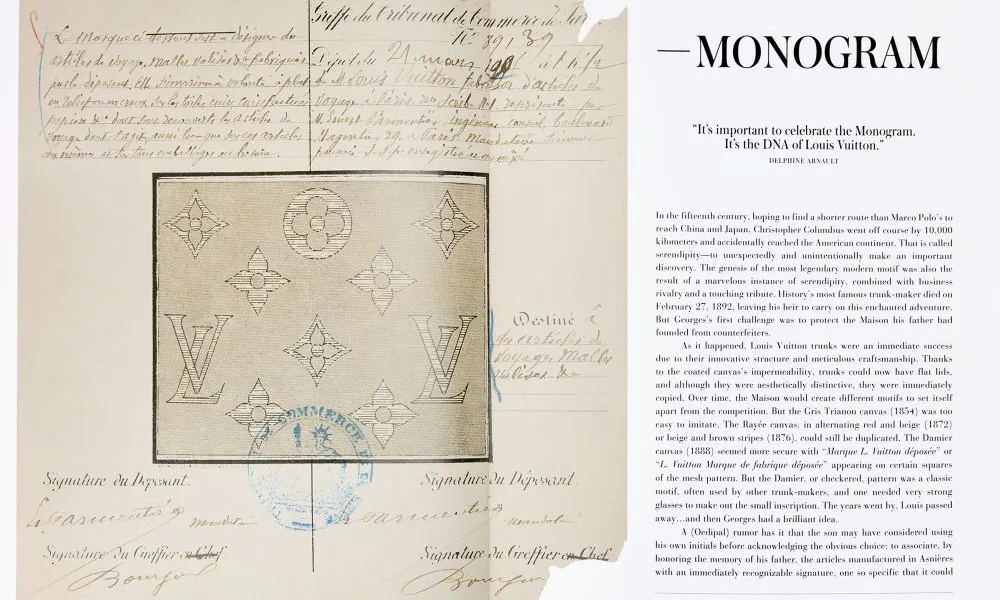 Greffe du tribunal de Commerce de
No 39,
La Marque ci est à désigner
articles de voyage, malles valises &a fabriqués
Dépôt du 21 mars
de M. Louis Vuitton fabricant d'articles de
Voyage à Paris, rue Scribe No 1, représenté par
M. Ernest ingénieur conseil, boulevard
Magenta, à Paris mandataire
voyage dont s'agit, aussi bien que sur ces articles
LV
LV
COMMERCE
Destiné à
des articles de
Voyage, Malles
Valises &a
Signature du Déposant,
Signature du Déposant,
mandataire
mandataire
Signature du Greffier en Chef
Signature du Greffier en Chef
—MONOGRAM
“It’s important to celebrate the Monogram.
It’s the DNA of Louis Vuitton.”
DELPHINE ARNAULT
In the fifteenth century, hoping to find a shorter route than Marco Polo’s to
reach China and Japan, Christopher Columbus went off course by 10,000
kilometers and accidentally reached the American continent. That is called
serendipity—to unexpectedly and unintentionally make an important
discovery. The genesis of the most legendary modern motif was also the
result of a marvelous instance of serendipity, combined with business
rivalry and a touching tribute. History’s most famous trunk-maker died on
February 27, 1892, leaving his heir to carry on this enchanted adventure.
But Georges’s first challenge was to protect the Maison his father had
founded from counterfeiters.
As it happened, Louis Vuitton trunks were an immediate success
due to their innovative structure and meticulous craftsmanship. Thanks
to the coated canvas’s impermeability, trunks could now have flat lids,
and although they were aesthetically distinctive, they were immediately
copied. Over time, the Maison would create different motifs to set itself
apart from the competition. But the Gris Trianon canvas (1854) was too
easy to imitate. The Rayée canvas, in alternating red and beige (1872)
or beige and brown stripes (1876), could still be duplicated. The Damier
canvas (1888) seemed more secure with “Marque L. Vuitton déposée” or
“L. Vuitton Marque de fabrique déposée” appearing on certain squares
of the mesh pattern. But the Damier, or checkered, pattern was a classic
motif, often used by other trunk-makers, and one needed very strong
glasses to make out the small inscription. The years went by, Louis passed
away…and then Georges had a brilliant idea.
A (Oedipal) rumor has it that the son may have considered using
his own initials before acknowledging the obvious choice: to associate, by
honoring the memory of his father, the articles manufactured in Asnières
with an immediately recognizable signature, one so specific that it could